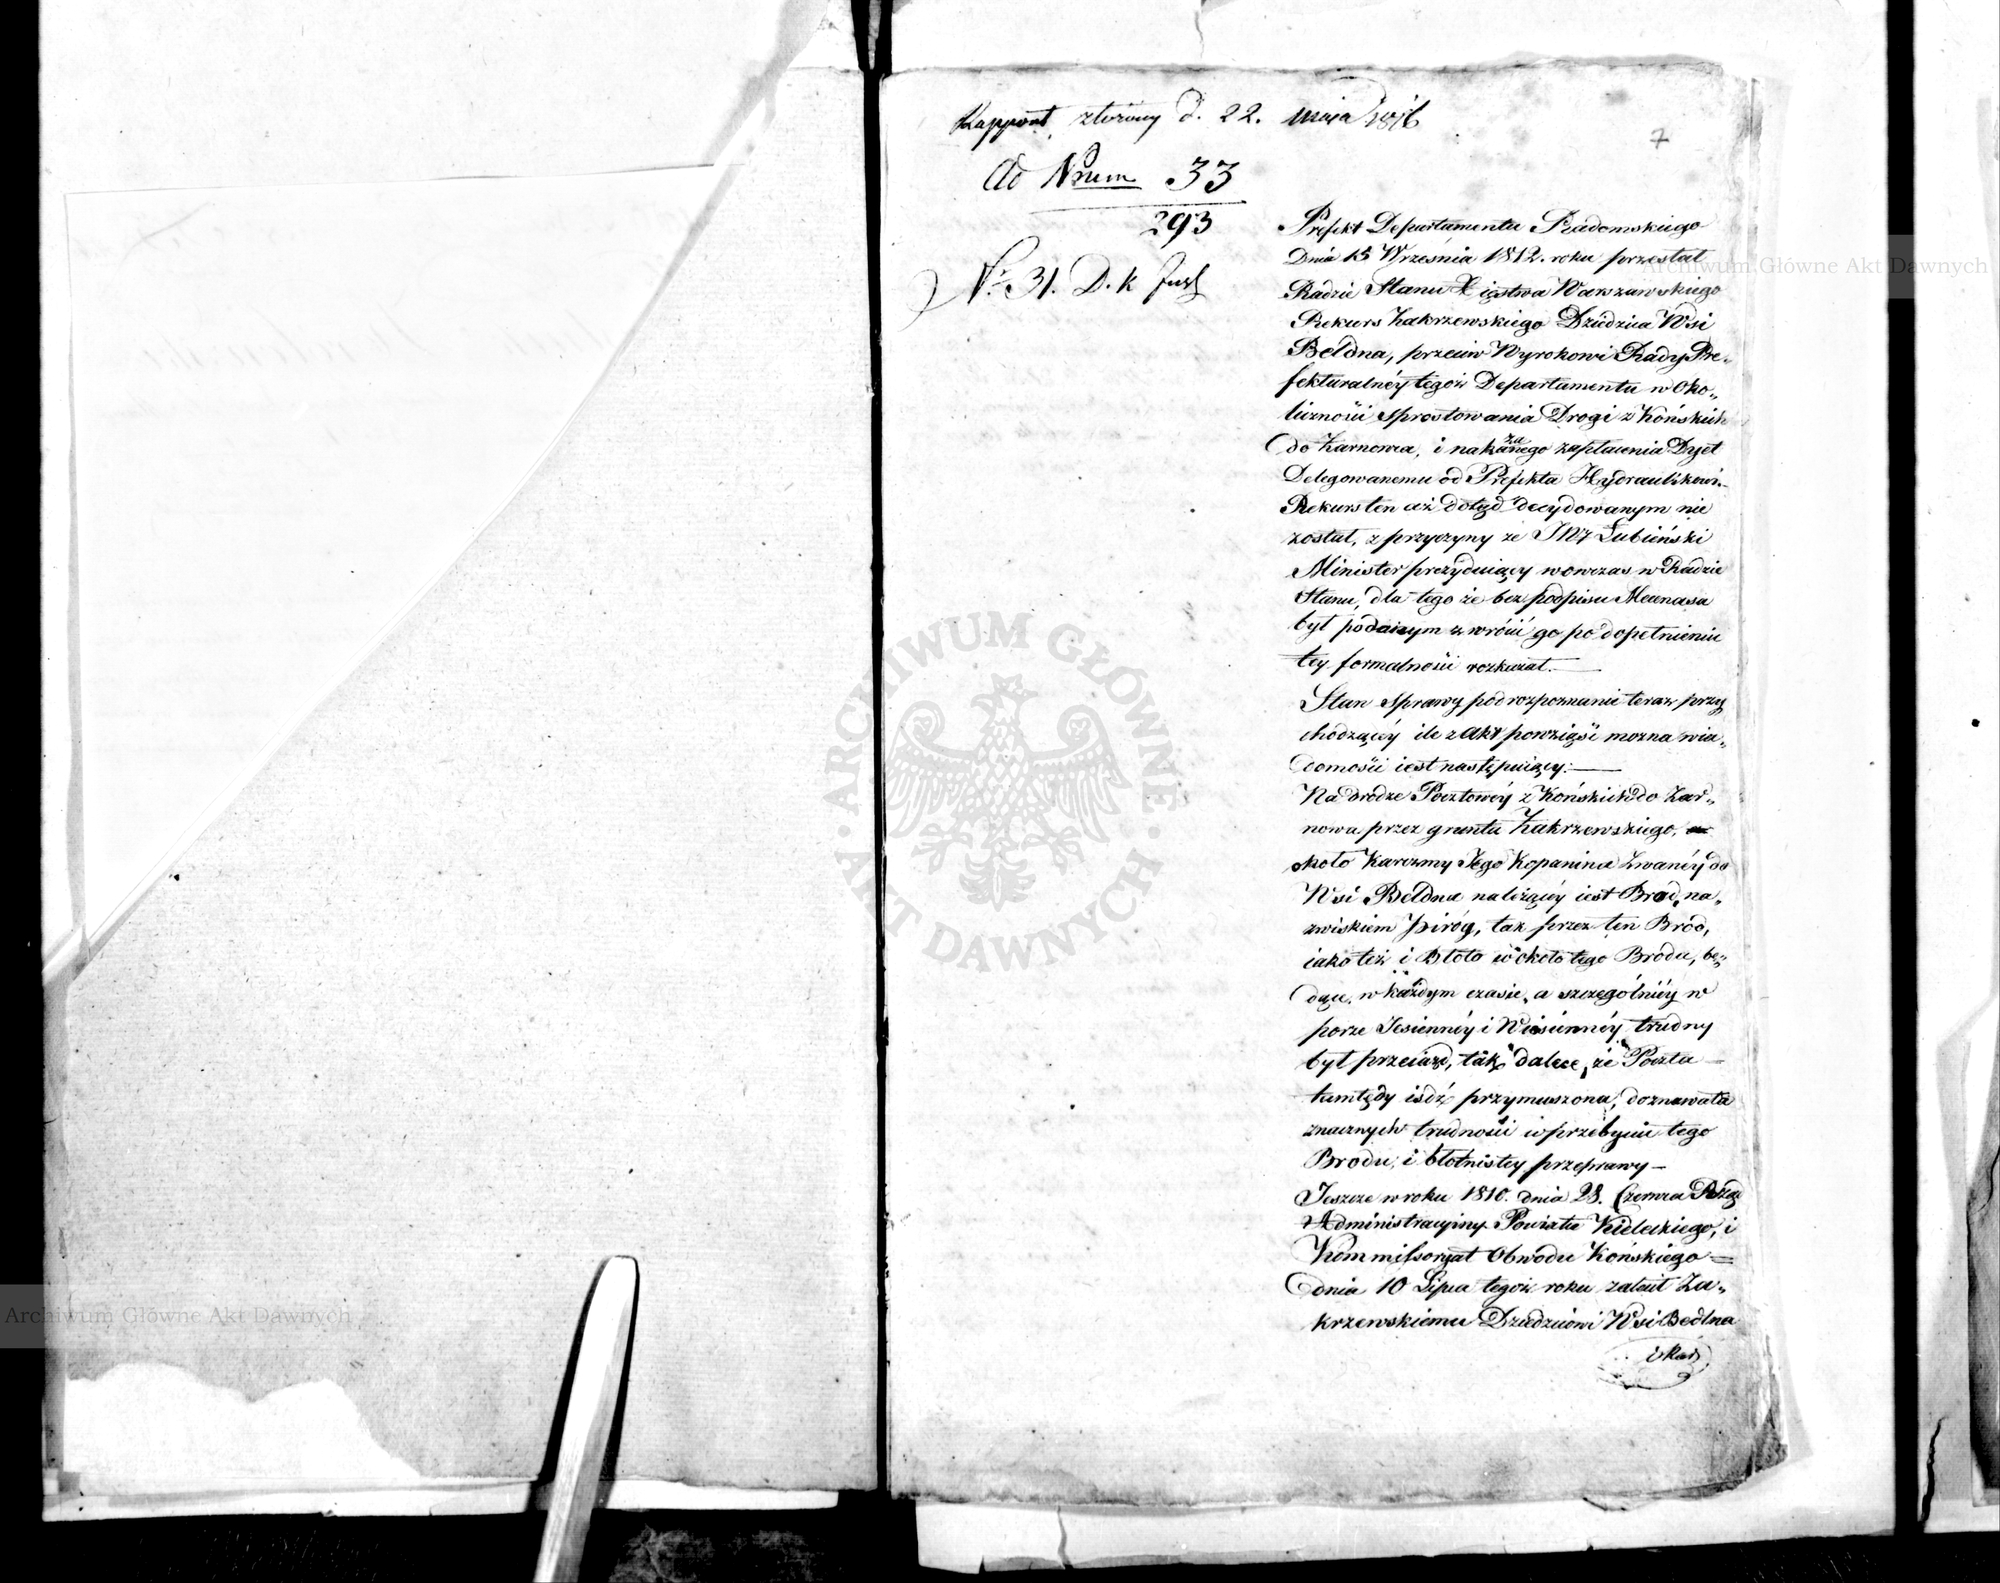 Rapport złożony d. 22. maja 1816
7
Ad Nrum 33
293
Nº 31. D. k Just
Prefekt Departamentu Radomskiego
Dnia 15 Września 1812. roku przesłał
Radzie Stanu Xięstwa Warszawskiego
Rekurs Zakrzewskiego Dziedzica Wsi
Bełdna, przeciw Wyrokowi Rady Pre„
fekturalnéy tegoż Departamentu w Oko„
liczności sprostowania Drogi z Końskich
do Żarnowa, i nakazanego zapłacenia Dyet
Delegowanemu od Prefekta Hydraulikowi.–
Rekurs ten aż dotąd decydowanym nie
został, z przyczyny że JW Łubieński
Minister prezyduiący wowczas w Radzie
Stanu, dla tego że bez podpisu Mecenasa
był podanym zwrócić go po dopełnieniu
tey formalności rozkazał.—
Stan Sprawy pod rozpoznanie teraz przy„
chodzącéy ile z akt powziąść można wia„
domości iest następuiący:—
Na drodze Pocztowéy z Końskich do Żar„
nowa przez grunta Zakrzewskiego,
około Karczmy Jego Kopanina zwanéy do
Wsi Bełdna należącéy iest Bród, na„
zwiskiem Piróg, tak przez ten Bród,
iako też i Błoto w około tego Brodu, bę„
dące, w każdym czasie, a szczególniéy w
porze Jesiennéy i Wiosiennéy trudny
był przeiazd, tak dalece, że Poczta
tamtędy iśdź przymuszona, doznawała
znacznych trudności w przebyciu tego
Brodu, i błotnistey przeprawy–
Jeszcze w roku 1810. dnia 28. Czerwca Rząd
Administracyiny Powiatu Kieleckiego, i
Kommissoryat Obwodu Końskiego =
dnia 10 Lipca tegoż roku zalecił Za„
krzewskiemu Dziedzicowi Wsi Bedlna
Archiwum Główne Akt Dawnych
Archiwum Główne Akt Dawnych
ARCHIWUM GŁÓWNE · AKT DAWNYCH ·